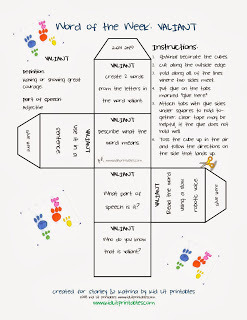 Word of the Week: VALIANT
VALIANT
Definition:
having or showing great
courage
part of speech:
adjective
Instructions:
1. Optional: decorate the cubes
2. Cut along outside edge
3. Fold along all of the lines
where two sides meet
4. Put glue on the tabs
marked "glue here"
5. Attach tabs with glue sides
under squares to hold to-
gether. Clear tape may be
helpful, if the glue does not
hold well.
6. Toss the cube up in the air
and follow the directions on
the side that lands up.
glue here
VALIANT
create 2 words
from the letters in
the word valiant
glue here
VALIANT
use it in a
sentence
VALIANT
describe what the
word means
VALIANT
Read the word
using a slow
robotic voice
glue here
VALIANT
What part of
speech is it?
VALIANT
Who do you know
that is valiant?
created for Stanley & Katrina by Kid Lit Printables
www.kidlitprintables.com